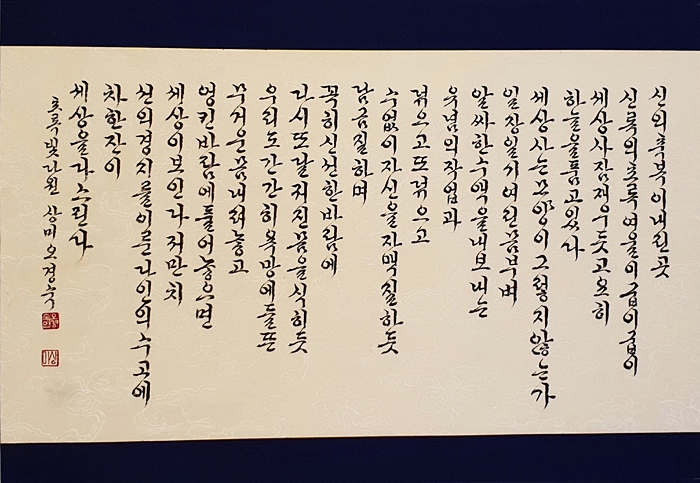 신의 축복이 내린 곳
신록의 초록 여울이 굽이굽이
세상사 잠재우듯 고요히
하늘을 품고 있다
세상사는 모양이 그렇지 않는가
일장일기 여린 몸부벼
알싸한 수액을 내보내는
유념의 작업과
덖으고 또 덖으고
수없이 자신을 자맥질하듯
담금질하며
꼭히 시선한 바람에
다시 또 달궈진 몸을 식히듯
우리도 간간히 욕망에 들뜬
무거운 몸 내려놓고
엉킨 바람에 풀어놓으면
세상이 보인다 저만치
선의 경지를 이룬 다인의 수고에
차 한잔이
세상을 다스린다
초록빛 나원 상미 오경숙